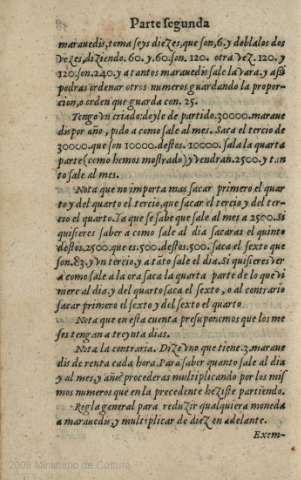 Parte segunda
marauedis, toma seys diezes, que son, 6. y doblalos dos
vezes, diziendo. 60. y. 60. son. 120. otra vez. 120. y
120. son. 240. y a tantos marauedis sale la vara. y assi
podras ordenar otros numeros guardando la propor-
cion, o orden que guarda con. 25.
Tengo vn criado: doyle de partido. 30000. maraue
dis por año, pido a como sale al mes. Saca el tercio de
30000. que son 10000. destos. 10000. sala la quarta
parte (como hemos mostrado) y vendran. 2500. y tan
to sale al mes.
Nota que no importa mas sacar primero el quar
to y del quarto el tercio, que sacar el tercio y del ter-
cio el quarto. Ya que se sabe que sale al mes a 2500. Si
quisieres saber a como sale al dia sacaras el quinto
destos. 2500. que es. 500. destos. 500. saca el sexto que
son. 83. y vn tercio, y a tãto sale el dia. Si quisieres ver
a como sale a la ora saca la quarta parte de lo que vi
niere al dia. y del quarto saca el sexto, o al contrario
sacar primero el sexto y del sexto el quarto.
Nota que en esta cuenta presuponemos que los me
ses tengan a treynta dias.
Nota la contraria. Dize vno que tiene. 3. maraue
dis de renta cada hora. Para saber quanto sale al dia
y al mes, y año procederas multiplicando por los mis
mos numeros que en la precedente heziste partiendo.
Regla general para reduzir qualquiera moneda
a marauedis, y multiplicar de diez en adelante.
Exem-
2009 Ministerio de Cultura